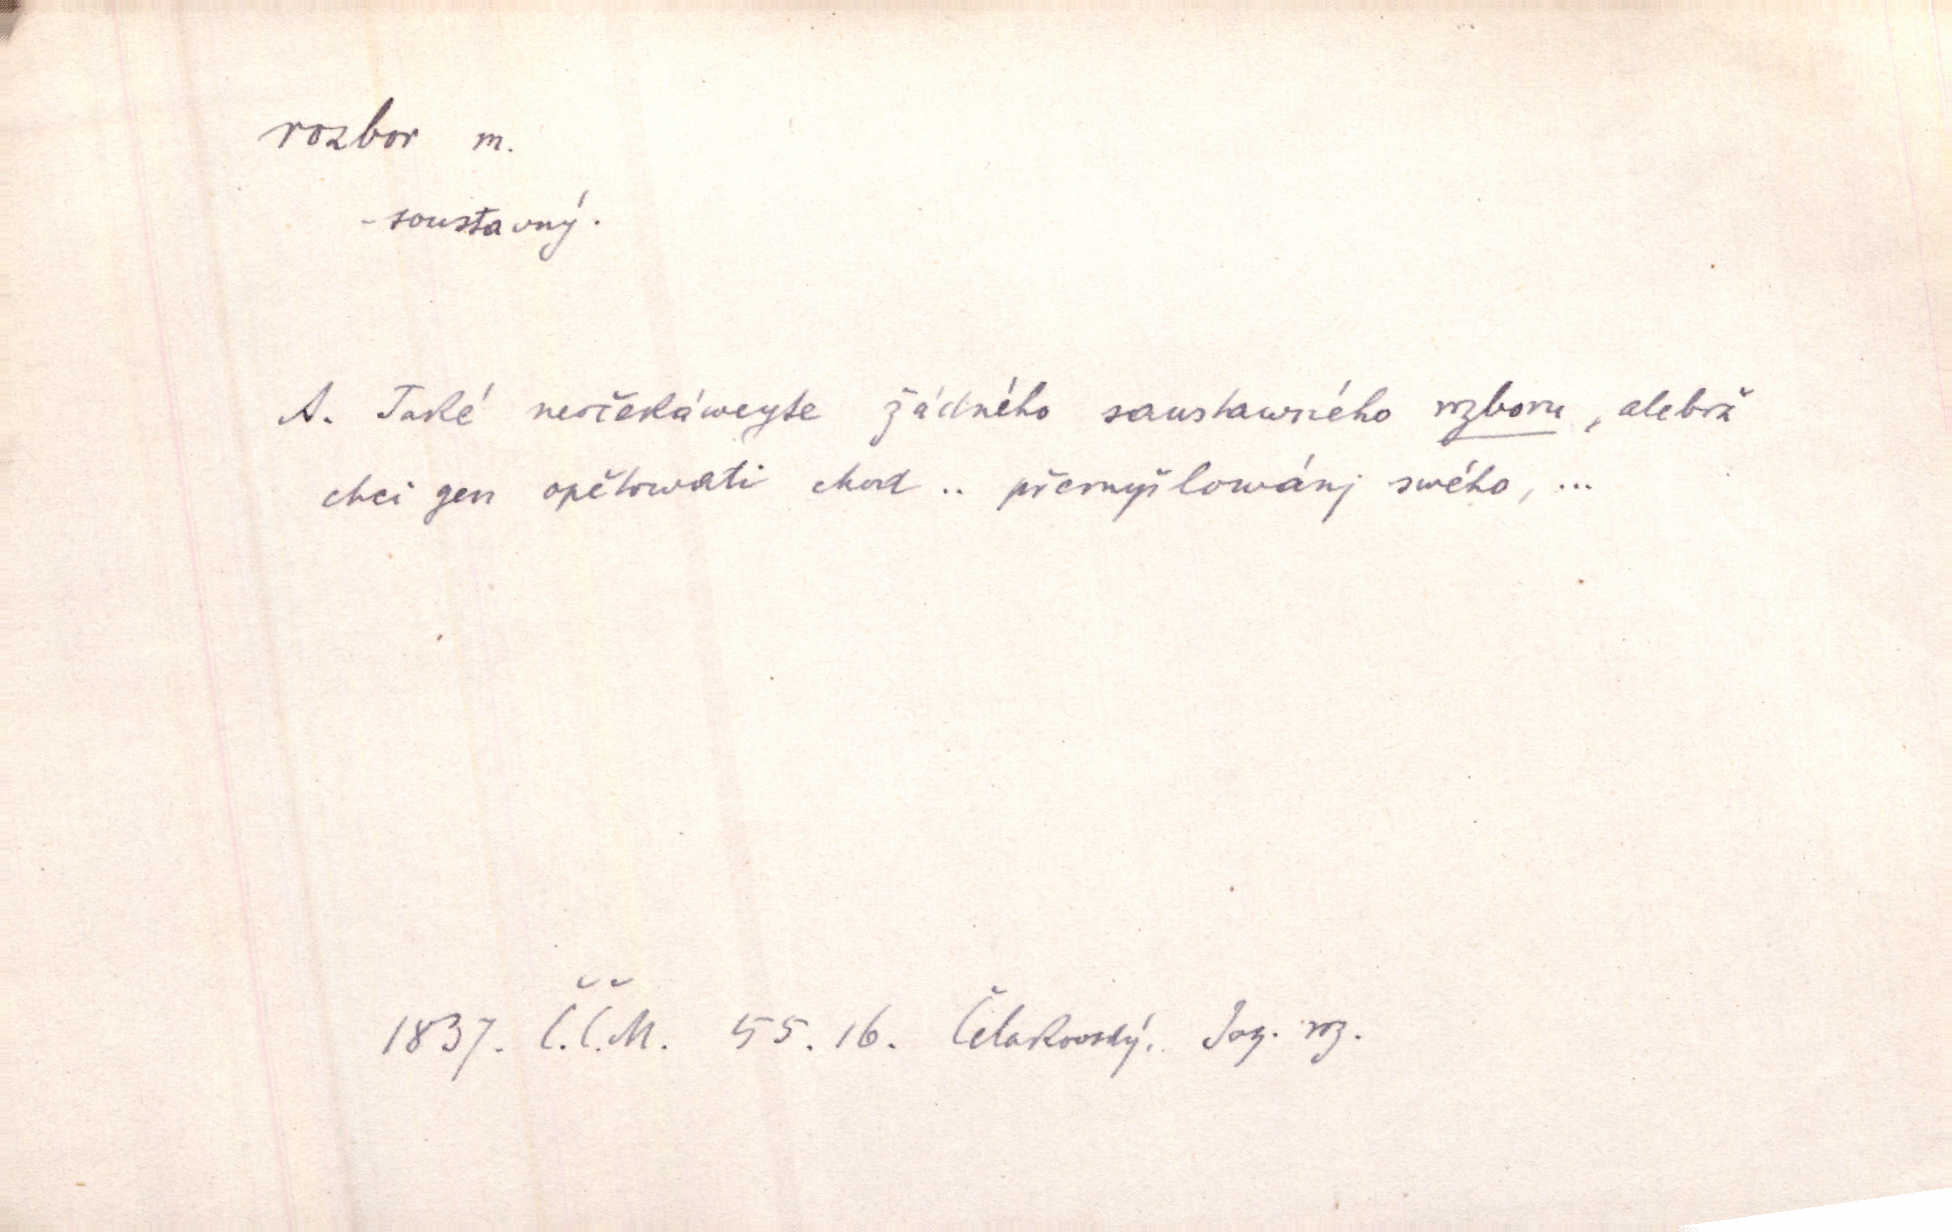 rozbor m.
- soustavný.
A. Také neočekáweyte žádného saustawného rozboru, alebrž
chci gen opětowati chod .. přemyšlowánj swého, ...
1837. Č.Č.M. 55. 16. Čelakovský. Jaz. roz.